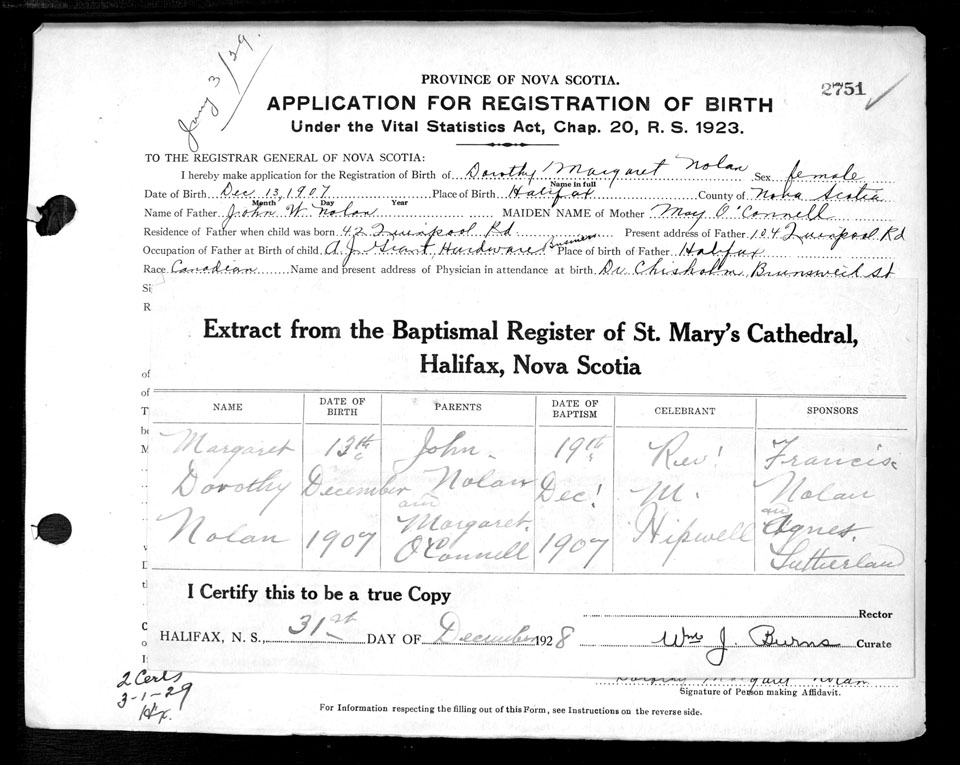 Jany 3/29.
PROVINCE OF NOVA SCOTIA.
2751
APPLICATION FOR REGISTRATION OF BIRTH
Under the Vital Statistics Act, Chap. 20, R. S. 1923.
TO THE REGISTRAR GENERAL OF NOVA SCOTIA:
I hereby make application for the Registration of Birth of Dorothy Margaret Nolan Sex female
Name in full
Date of Birth Dec 13, 1907 Place of Birth Halifax County of Nova Scotia
Month Day Year
Name of Father John W. Nolan MAIDEN NAME of Mother May O'Connell
Residence of Father when child was born 42 Quinpool Rd Present address of Father 104 Quinpool Rd
Occupation of Father at Birth of child A. J. Grant Hardware Business Place of Birth of Father Halifax
Race Canadian Name and present address of Physician in attendance at birth Dr Chisholm, Brunsweik St
Si
R
Extract from the Baptismal Register of St. Mary's Cathedral,
Halifax, Nova Scotia
of
of
T
be
M
NAME DATE OF BIRTH PARENTS DATE OF BAPTISM CELEBRANT SPONSORS
Margaret 13th John 19th Rev! Francis
Dorothy December Nolan Dec! M. Nolan
and and
Nolan 1907 Margaret O'Connell 1907 Hipwell Agnes Sutherland
I Certify this to be a true Copy
Rector
HALIFAX, N. S., 31st DAY OF December 1928 Wm J. Burns Curate
2 Certs
3-1-29
Hx.
Dorothy Margaret Nolan
Signature of Person making Affidavit.
For Information respecting the filling out of this Form, see Instructions on the reverse side.